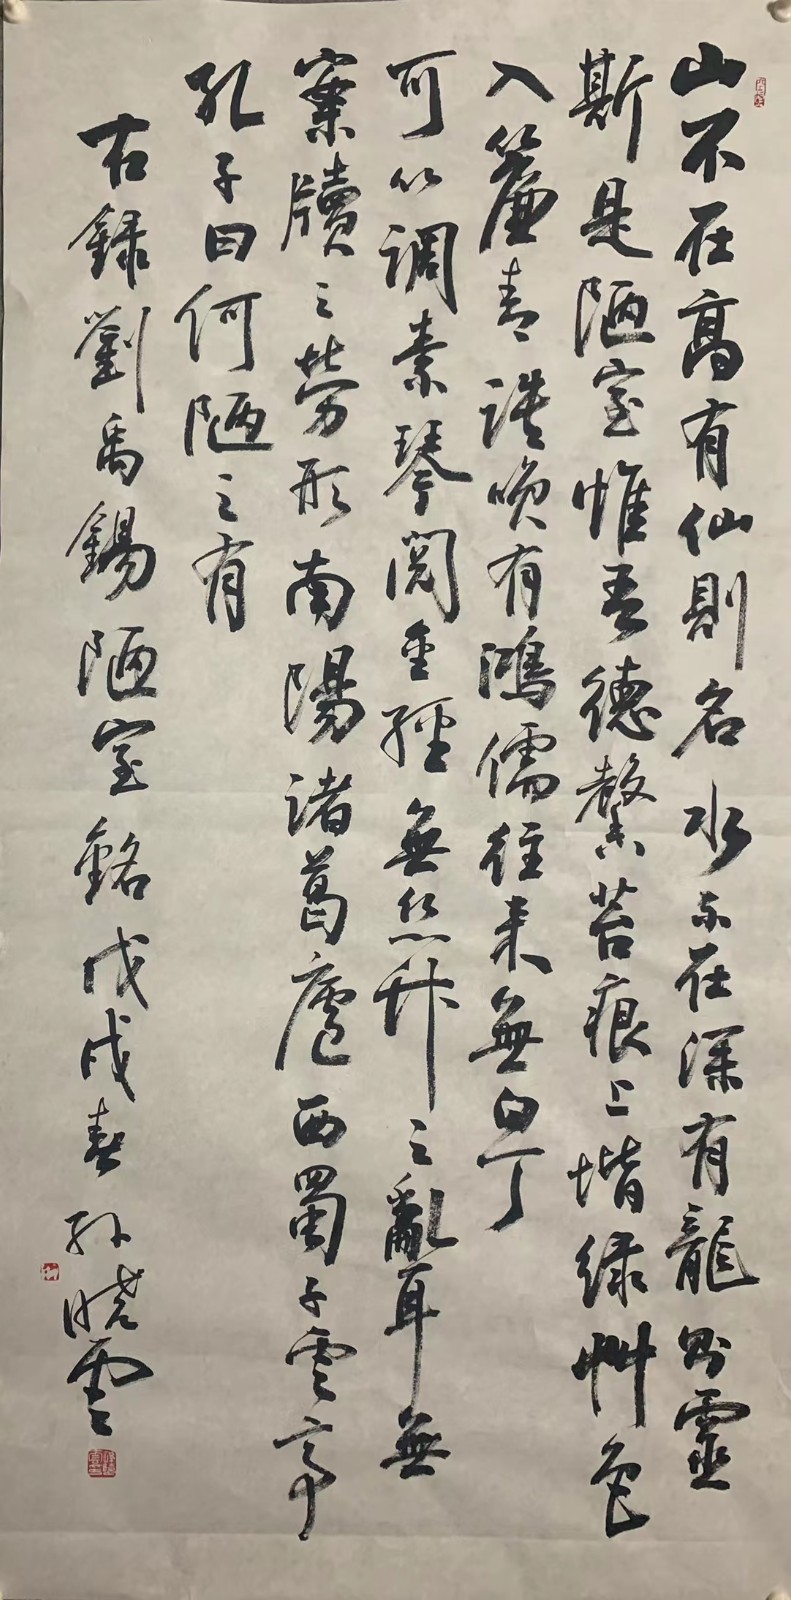 山不在高有仙則名水不在深有龍則靈
斯是陋室惟吾德馨苔痕上堦緑艸色
入簾青談笑有鴻儒往来無白丁
可以調素琴閲金經無絲竹之亂耳無
案牘之勞形南陽諸葛廬西蜀子雲亭
孔子曰何陋之有
右録劉禹錫陋室銘戊戌春孙晓雲